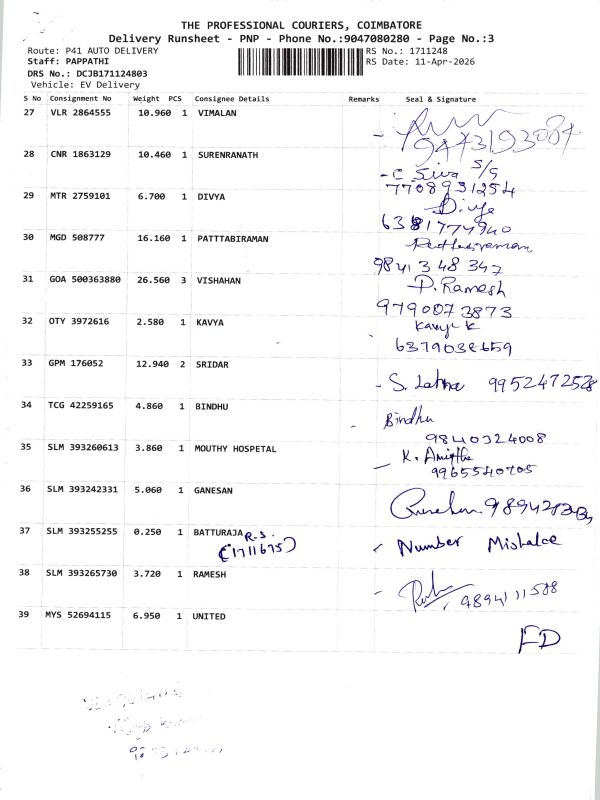 THE PROFESSIONAL COURIERS, COIMBATORE
Delivery Runsheet - PNP - Phone No.:9047080280 - Page No.:3
Route: P41 AUTO DELIVERY RS No.: 1711248
Staff: PAPPATHI RS Date: 11-Apr-2026
DRS No.: DCJB171124803
Vehicle: EV Delivery
S No Consignment No Weight PCS Consignee Details Remarks Seal & Signature
27 VLR 2864555 10.960 1 VIMALAN
9443193084
28 CNR 1863129 10.460 1 SURENRANATH
- C Siva S/S
7708931254
29 MTR 2759101 6.700 1 DIVYA
Divya
6381774940
30 MGD 508777 16.160 1 PATTTABIRAMAN
9841348347
31 GOA 500363880 26.560 3 VISHAHAN
P. Ramesh
9790073873
32 OTY 3972616 2.580 1 KAVYA
Kavya K
6379038659
33 GPM 176052 12.940 2 SRIDAR
- S. Latha 9952472528
34 TCG 42259165 4.860 1 BINDHU
Bindhu
9840324008
35 SLM 393260613 3.860 1 MOUTHY HOSPETAL
- K. Amirtha
9965540705
36 SLM 393242331 5.060 1 GANESAN
37 SLM 393255255 0.250 1 BATTURAJA R.S.
(1711675) Number Mistake
38 SLM 393265730 3.720 1 RAMESH
9894111588
39 MYS 52694115 6.950 1 UNITED
FD